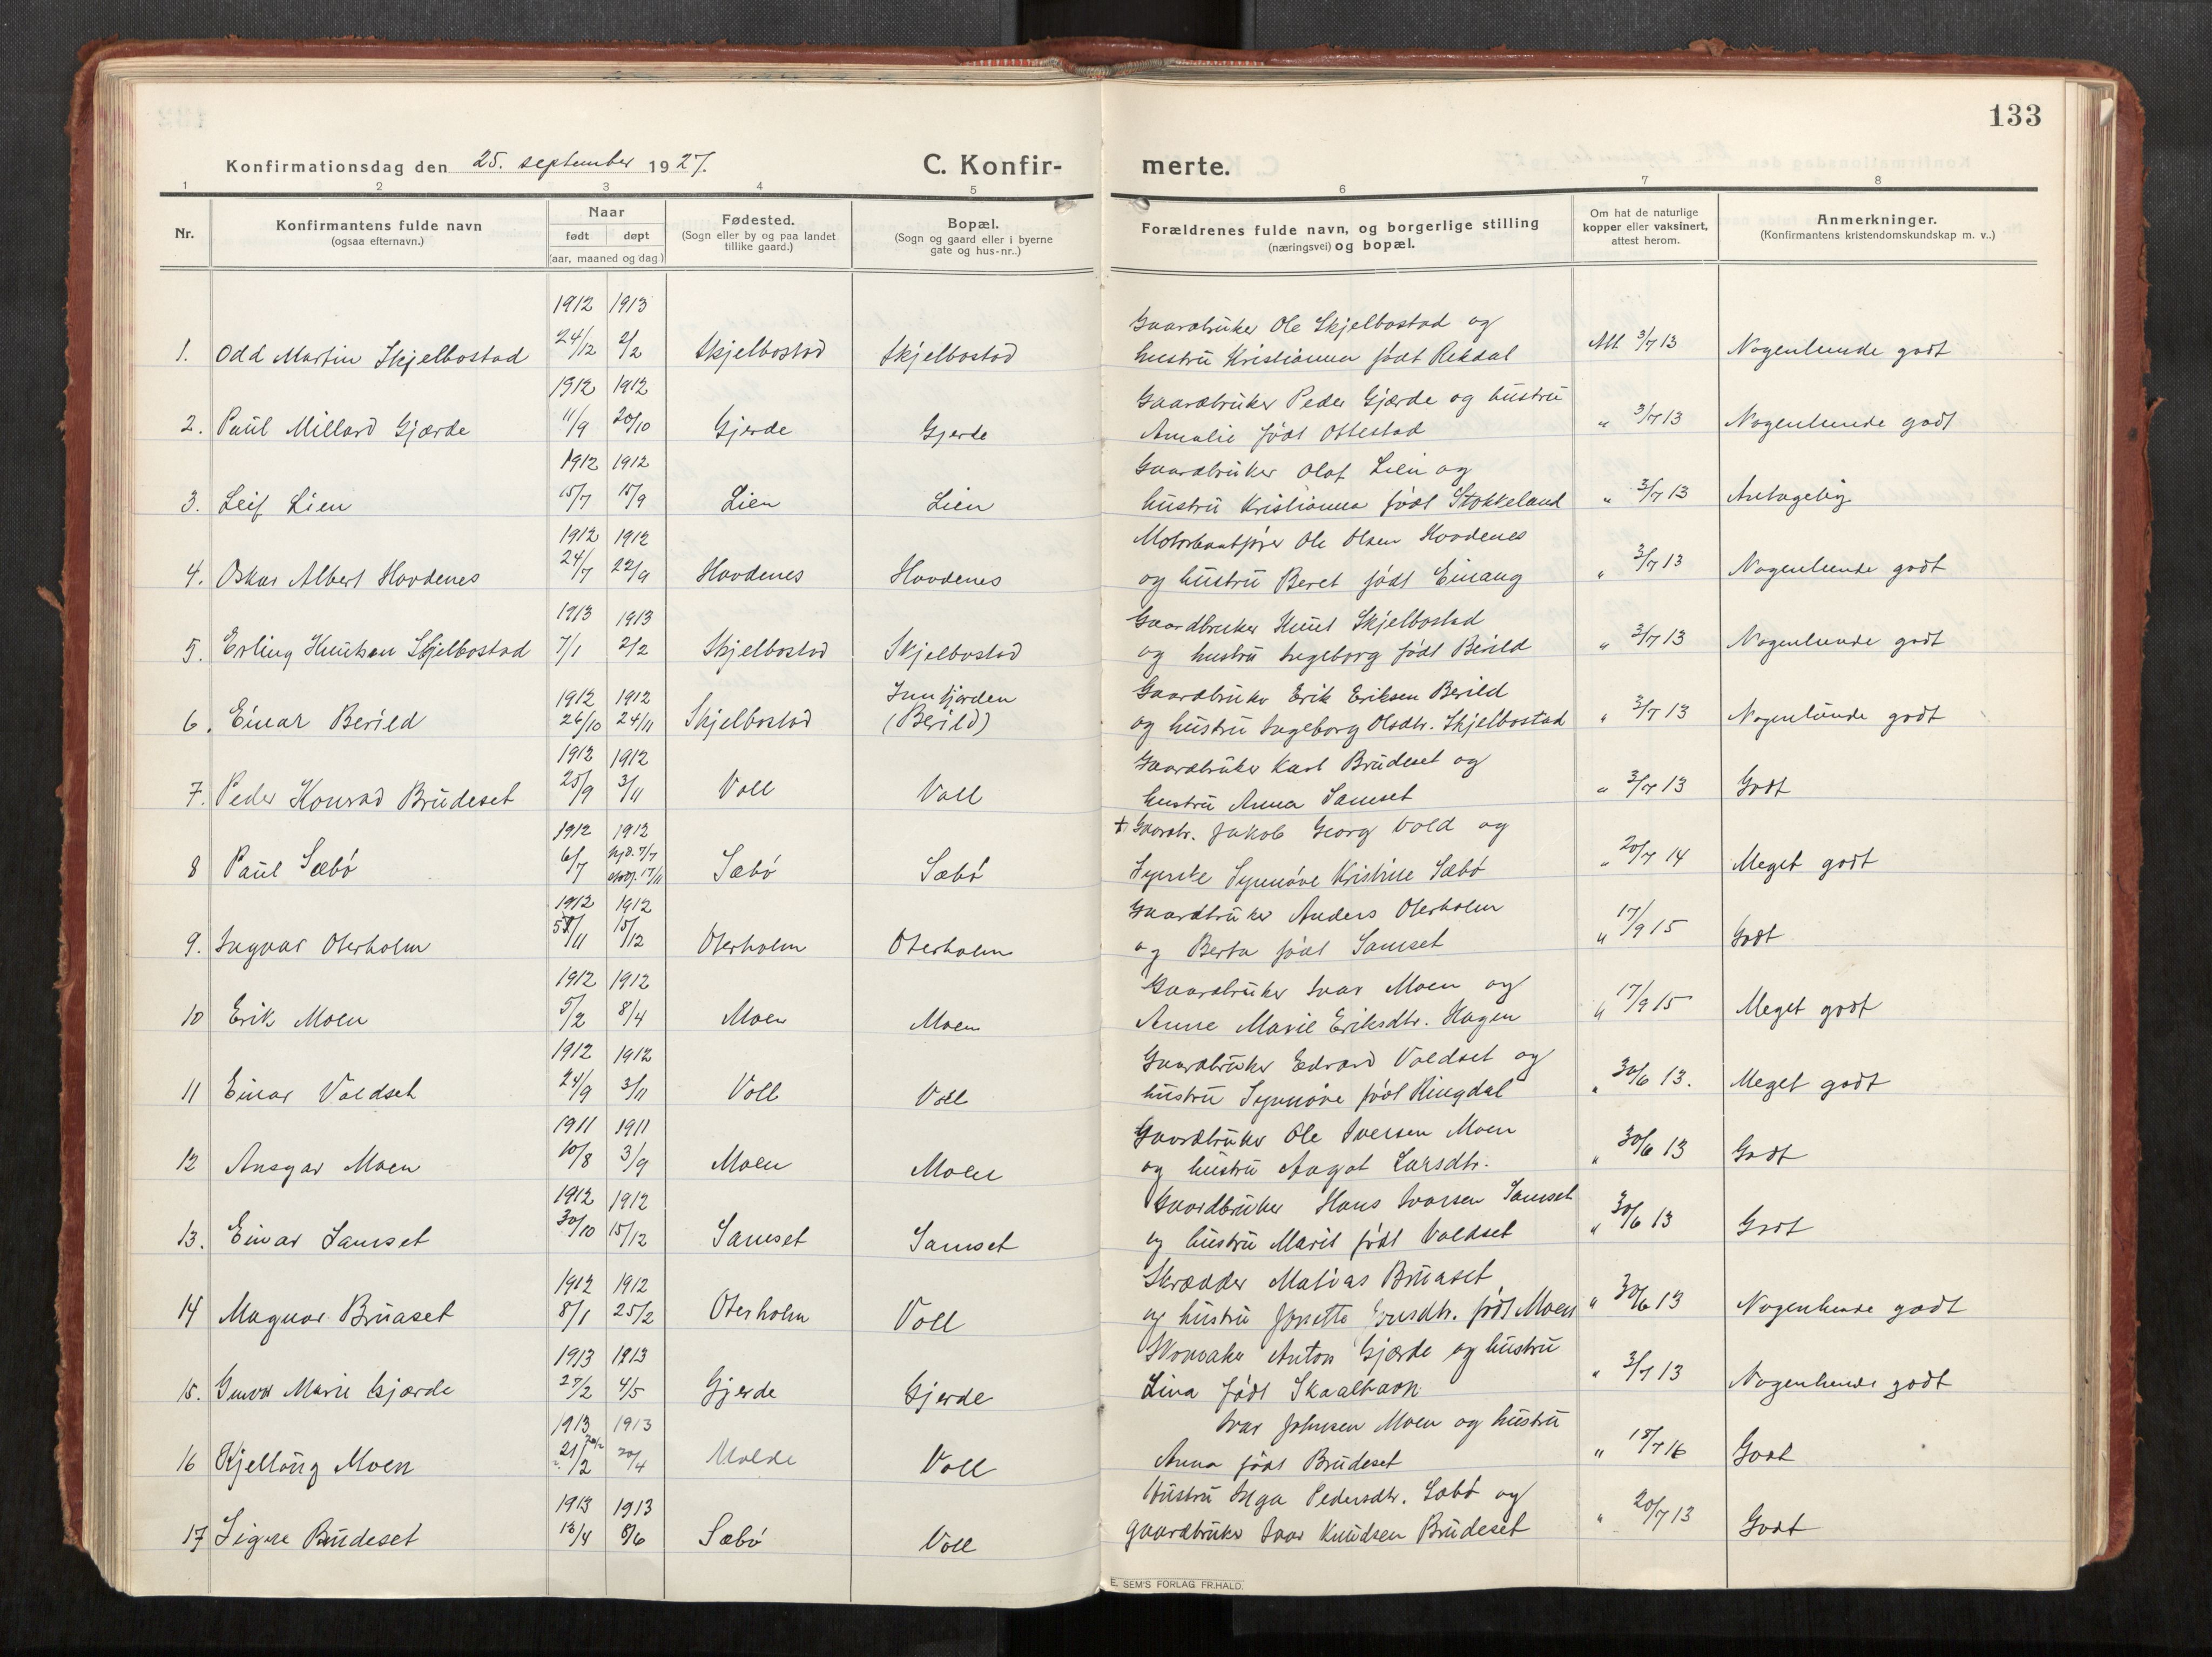 133
Konfirmationsdag den 25. september 1927. C. Konfir- merte.
1 2 3 4 5 6 7 8
Nr. Konfirmantens fulde navn (ogsaa efternavn.) Naar født døpt (aar, maaned og dag.) Fødested. (Sogn eller by og paa landet tillike gaard.) Bopæl. (Sogn og gaard eller i byerne gate og hus-nr..) Forældrenes fulde navn, og borgerlige stilling (næringsvei) og bopæl. Om hat de naturlige kopper eller vaksinert, attest herom. Anmerkninger. (Konfirmantens kristendomskundskap m. v..)
1912 1913 Gaardbruker Ole Skjelbostad og
1. Odd Martin Skjelbostad 24/12 2/2 Skjelbostad Skjelbostad hustru Kristianna født Rekdal Att. 3/7 13 Nogenlunde godt
1912 1912 Gaardbruker Peder Gjærde og hustru
2. Paul Millard Gjærde 11/9 20/10 Gjerde Gjerde Amalie født Ottestad " 3/7 13 Nogenlunde godt
1912 1912 Gaardbruker Olaf Lien og
3. Leif Lien 15/7 15/9 Lien Lien hustru Kristianna født Stokkeland " 3/7 13 Antagelig
1912 1912 Motorbaatfører Ole Olsen Hovdenes
4. Oskar Albert Hovdenes 24/7 22/9 Hovdenes Hovdenes og hustru Beret født Einang " 3/7 13 Nogenlunde godt
1913 1913 Gaardbruker Knut Skjelbostad
5. Erling Knutsen Skjelbostad 7/1 2/2 Skjelbostad Skjelbostad og hustru Ingeborg født Berild " 3/7 13 Nogenlunde godt
1912 1912 Innfjorden Gaardbruker Erik Eriksen Berild
6. Einar Berild 26/10 24/11 Skjelbostad (Berild) og hustru Ingeborg Olsdtr. Skjelbostad " 3/7 13 Nogenlunde godt
1912 1912 Gaardbruker Karl Brudeset og
7. Peder Konrad Brudeset 25/9 3/11 Voll Voll hustru Anna Samset " 3/7 13 Godt
1912 1912 + Gaardbr. Jakob Georg Vold og
8 Paul Sæbø 6/7 hjd. 7/7 17/11 Sæbø Sæbø Synnøve Kristine Sæbø " 20/7 14 Meget godt
1912 1912 Gaardbruker Anders Oterholm
9. Ingvar Oterholm /11 15/12 Oterholm Oterholm og Berta født Samset " 17/9 15 Godt
1912 1912 Gaardbruker Ivar Moen og
10 Erik Moen 5/2 8/4 Moen Moen Anne Marie Eriksdtr. Hagen " 17/9 15 Meget godt
1912 1912 Gaardbruker Edvard Voldset og
11 Einar Voldset 24/9 3/11 Voll Voll hustru Synnøve født Ringdal " 30/6 13. Meget godt
1911 1911 Gaardbruker Ole Iversen Moen
12 Ansgar Moen 10/8 3/9 Moen Moen og hustru Aagot Larsdtr. " 30/6 13 Godt
1912 1912 Gaardbruker Hans Ivarsen Samset
13. Einar Samset 30/10 15/12 Samset Samset og hustru Marit født Voldset " 30/6 13 Godt
1912 1912 Skrædder Matias Bruaset
14 Magnar Bruaset 8/1 25/2 Oterholm Voll og hustru Josette født Moen " 30/6 13 Nogenlunde godt
1913 1913 Skomaker Anton Gjærde og hustru
15. Gunvor Marie Gjærde 27/2 4/5 Gjerde Gjerde Lina født Skaalhavn " 3/7 13 Nogenlunde godt
1913 1913 Ivar Johnsen Moen og hustru
16 Kjellaug Moen 21/2 20/4 Molde Voll Anna født Brudeset " 18/7 16 Godt
1913 1913 Hustru Inga Pedersdtr. Sæbø og
17 Signe Brudeset 13/4 8/6 Sæbø Voll gaardbruker Ivar Knudsen Brudeset " 20/7 13 Godt
E. SEM'S FORLAG FR.HALD.